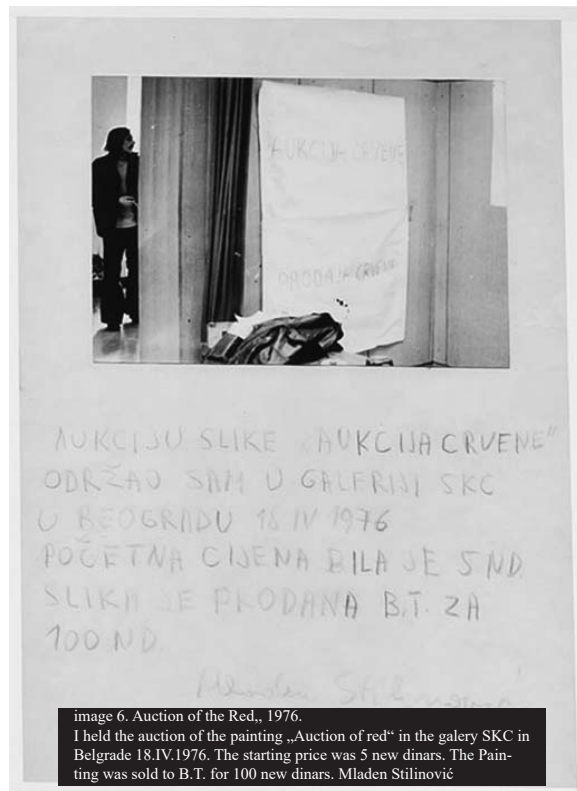 AUKCIJA CRVENE
PRODAJA CRVENE
AUKCIJU SLIKE „AUKCIJA CRVENE"
ODRŽAO SAM U GALERIJI SKC
U BEOGRADU 18 IV 1976
POČETNA CIJENA BILA JE 5 ND.
SLIKA JE PRODANA B.T. ZA
100 ND
Mladen Stilinović
image 6. Auction of the Red,, 1976.
I held the auction of the painting „Auction of red“ in the galery SKC in
Belgrade 18.IV.1976. The starting price was 5 new dinars. The Pain-
ting was sold to B.T. for 100 new dinars. Mladen Stilinović